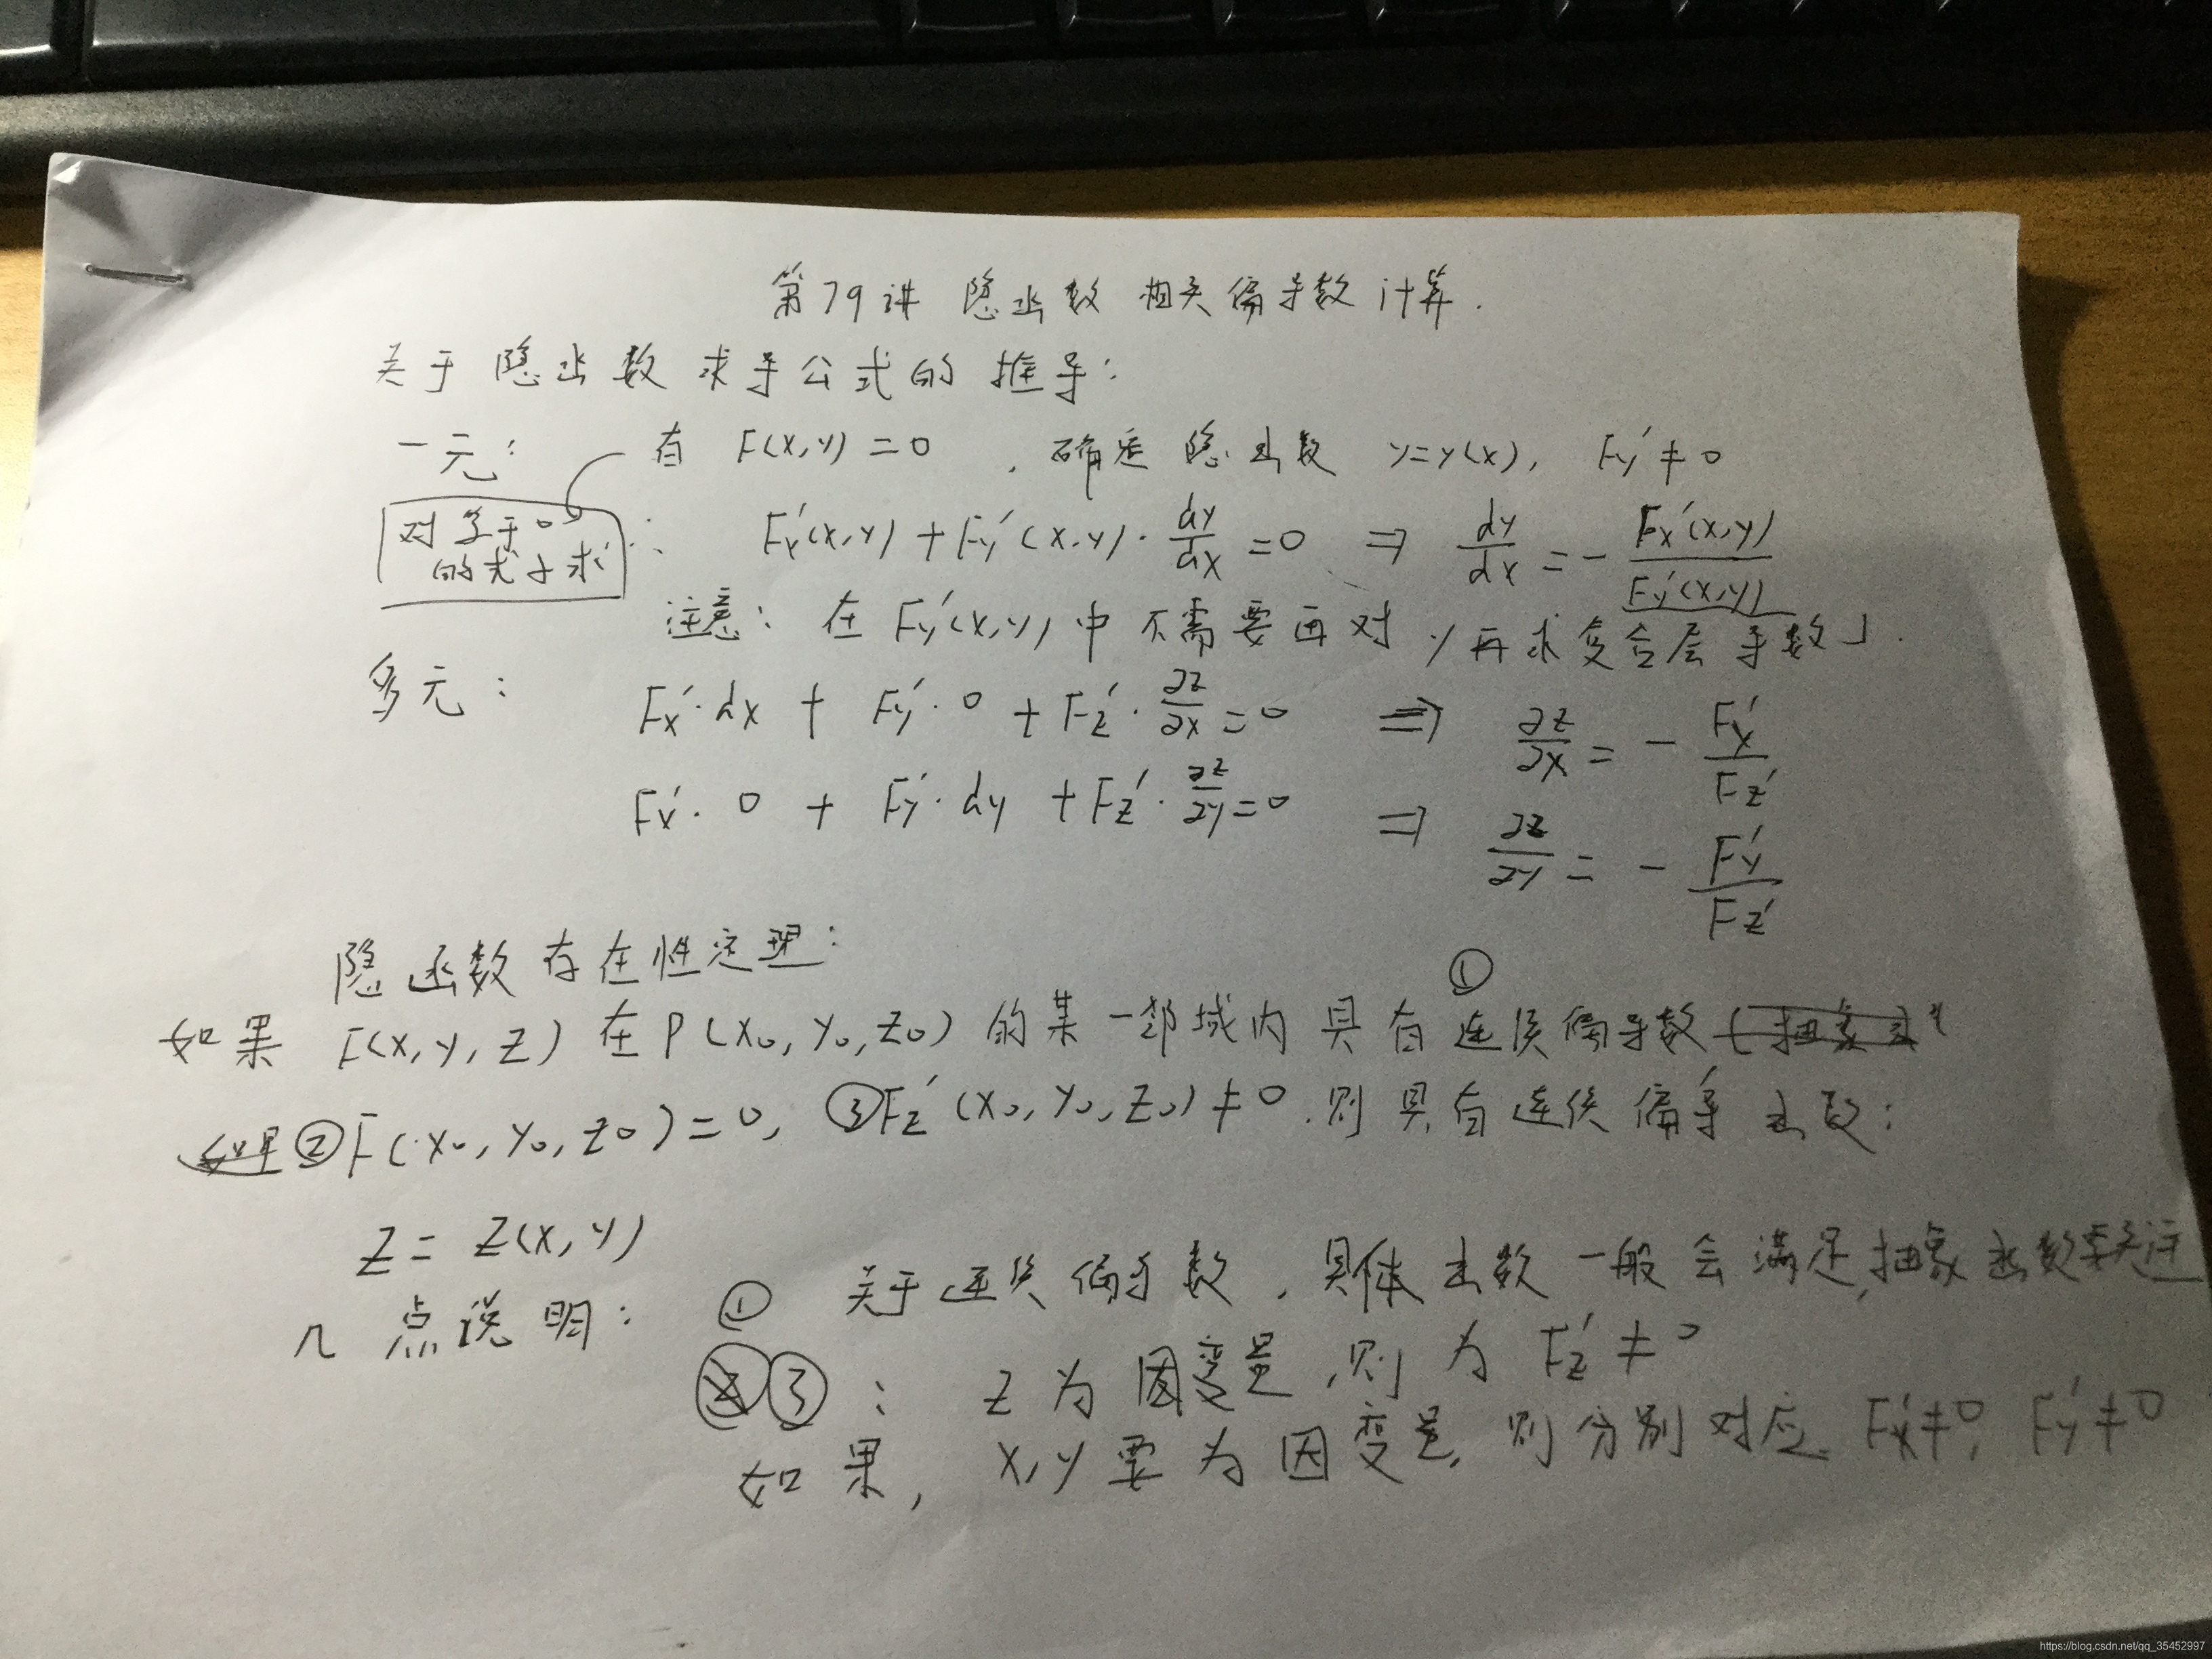 第79讲 隐函数 相关偏导数计算.
关于隐函数求导公式的推导:
一元: 有 F(x,y)=0 ,确定隐函数 y=y(x), Fy'≠0
对等于0的式子求
∴ Fx'(x,y)+Fy'(x,y)·dy/dx=0 ⇒ dy/dx=-Fx'(x,y)/Fy'(x,y)
注意: 在Fy'(x,y)中不需要再对y再求复合层导数」.
多元: Fx'·dx + Fy'·0 + Fz'·∂z/∂x=0 ⇒ ∂z/∂x=-Fx'/Fz'
Fx'·0 + Fy'·dy + Fz'·∂z/∂y=0 ⇒ ∂z/∂y=-Fy'/Fz'
隐函数存在性定理:
如果 F(x,y,z)在P(x₀,y₀,z₀)的某一邻域内具有①连续偏导数
②F(x₀,y₀,z₀)=0, ③Fz'(x₀,y₀,z₀)≠0.则具有连续偏导函数:
z=z(x,y)
几点说明: ① 关于连续偏导数,具体函数一般会满足,抽象函数要关注
③: z为因变量,则为Fz'≠0
如果, x,y要为因变量,则分别对应 Fx'≠0, Fy'≠0
https://blog.csdn.net/qq_35452997